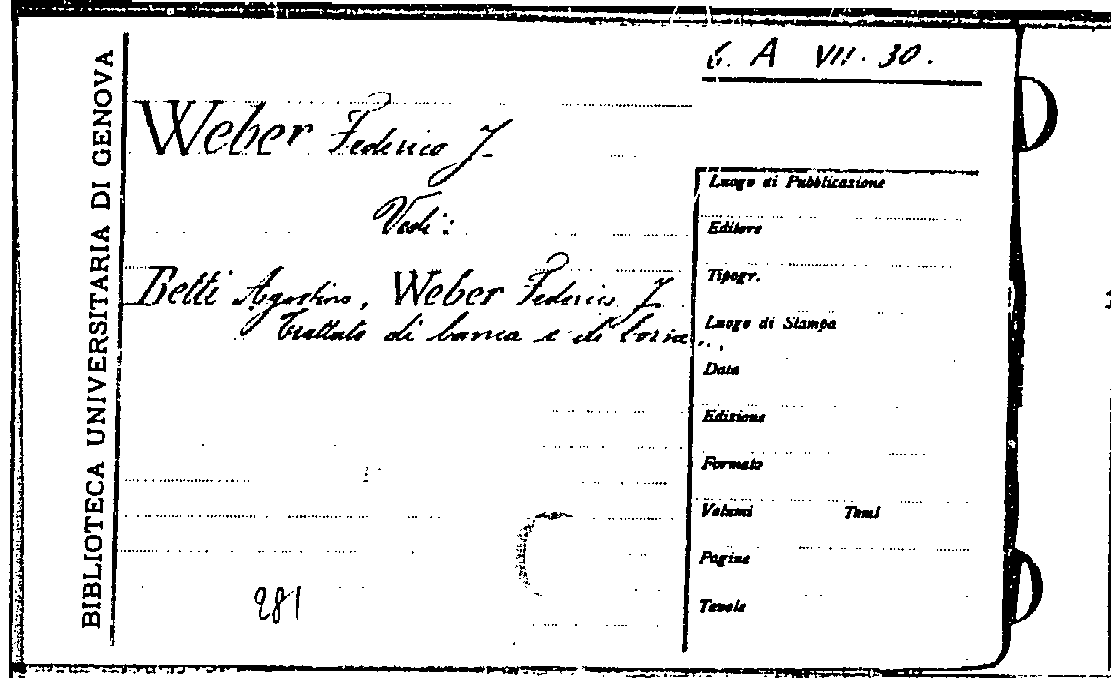 BIBLIOTECA UNIVERSITARIA DI GENOVA
6. A VII. 30.
Weber Federico J.
Vedi:
Betti Agostino, Weber Federico J.
Trattato di banca e di borsa...
Luogo di Pubblicazione
Editore
Tipogr.
Luogo di Stampa
Data
Edizione
Formato
Volumi Tomi
Pagine
Tavole
281